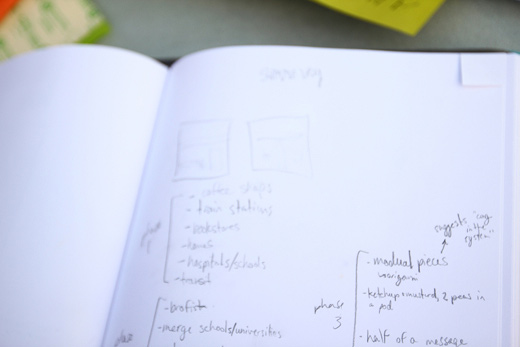 - coffee shops
- train stations
- bookstores
- hospitals/schools
- transit
phase
- profit
- merge schools/universities
suggests "cog
in the
system"
- modual pieces
- ketchup + mustard, 2 peas in
a pod
phase
3
- half of a message